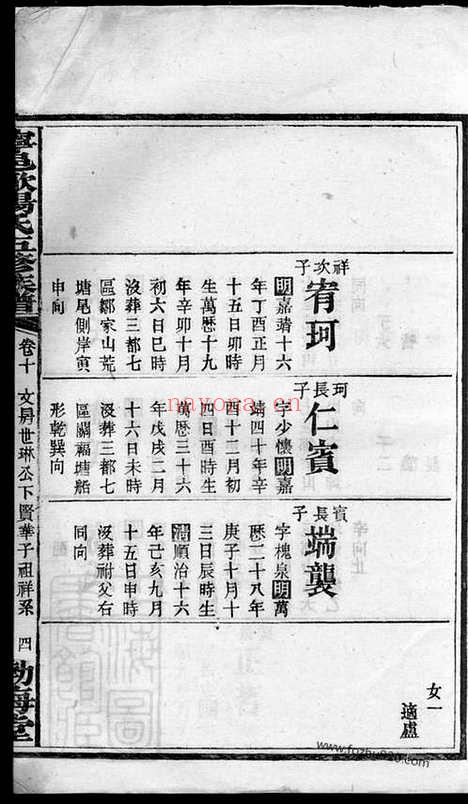 寧邑歐陽氏五修族譜
卷十
文昇世琳公下賢華子祖祥系
四
渤海堂
祥次子
宥珂
明嘉靖十六
年丁酉正月
十五日卯時
生萬曆十九
年辛卯十月
初六日巳時
沒葬三都七
區鄒家山荒
塘尾側岸寅
申向
珂長子
仁賓
字少懷明嘉
靖四十年辛
酉十二月初
四日酉時生
萬曆三十六
年戊戌二月
十六日未時
沒葬三都七
區關福塘船
形乾巽向
賓長子
端襲
字槐泉明萬
曆二十八年
庚子十月十
三日辰時生
清順治十六
年己亥九月
十五日申時
沒葬祔父右
同向
女一
適盧
nayona.cn
www.fozhu920.com